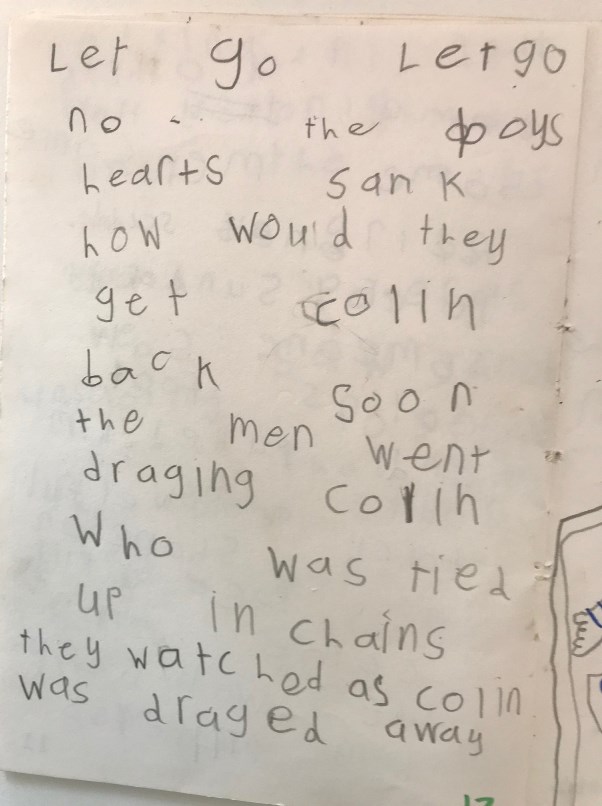 Let go Let go
no .. the boys
hearts sank
how would they
get colin
back soon
the men went
draging colin
Who was tied
up in chains
they watched as colin
was draged away
17